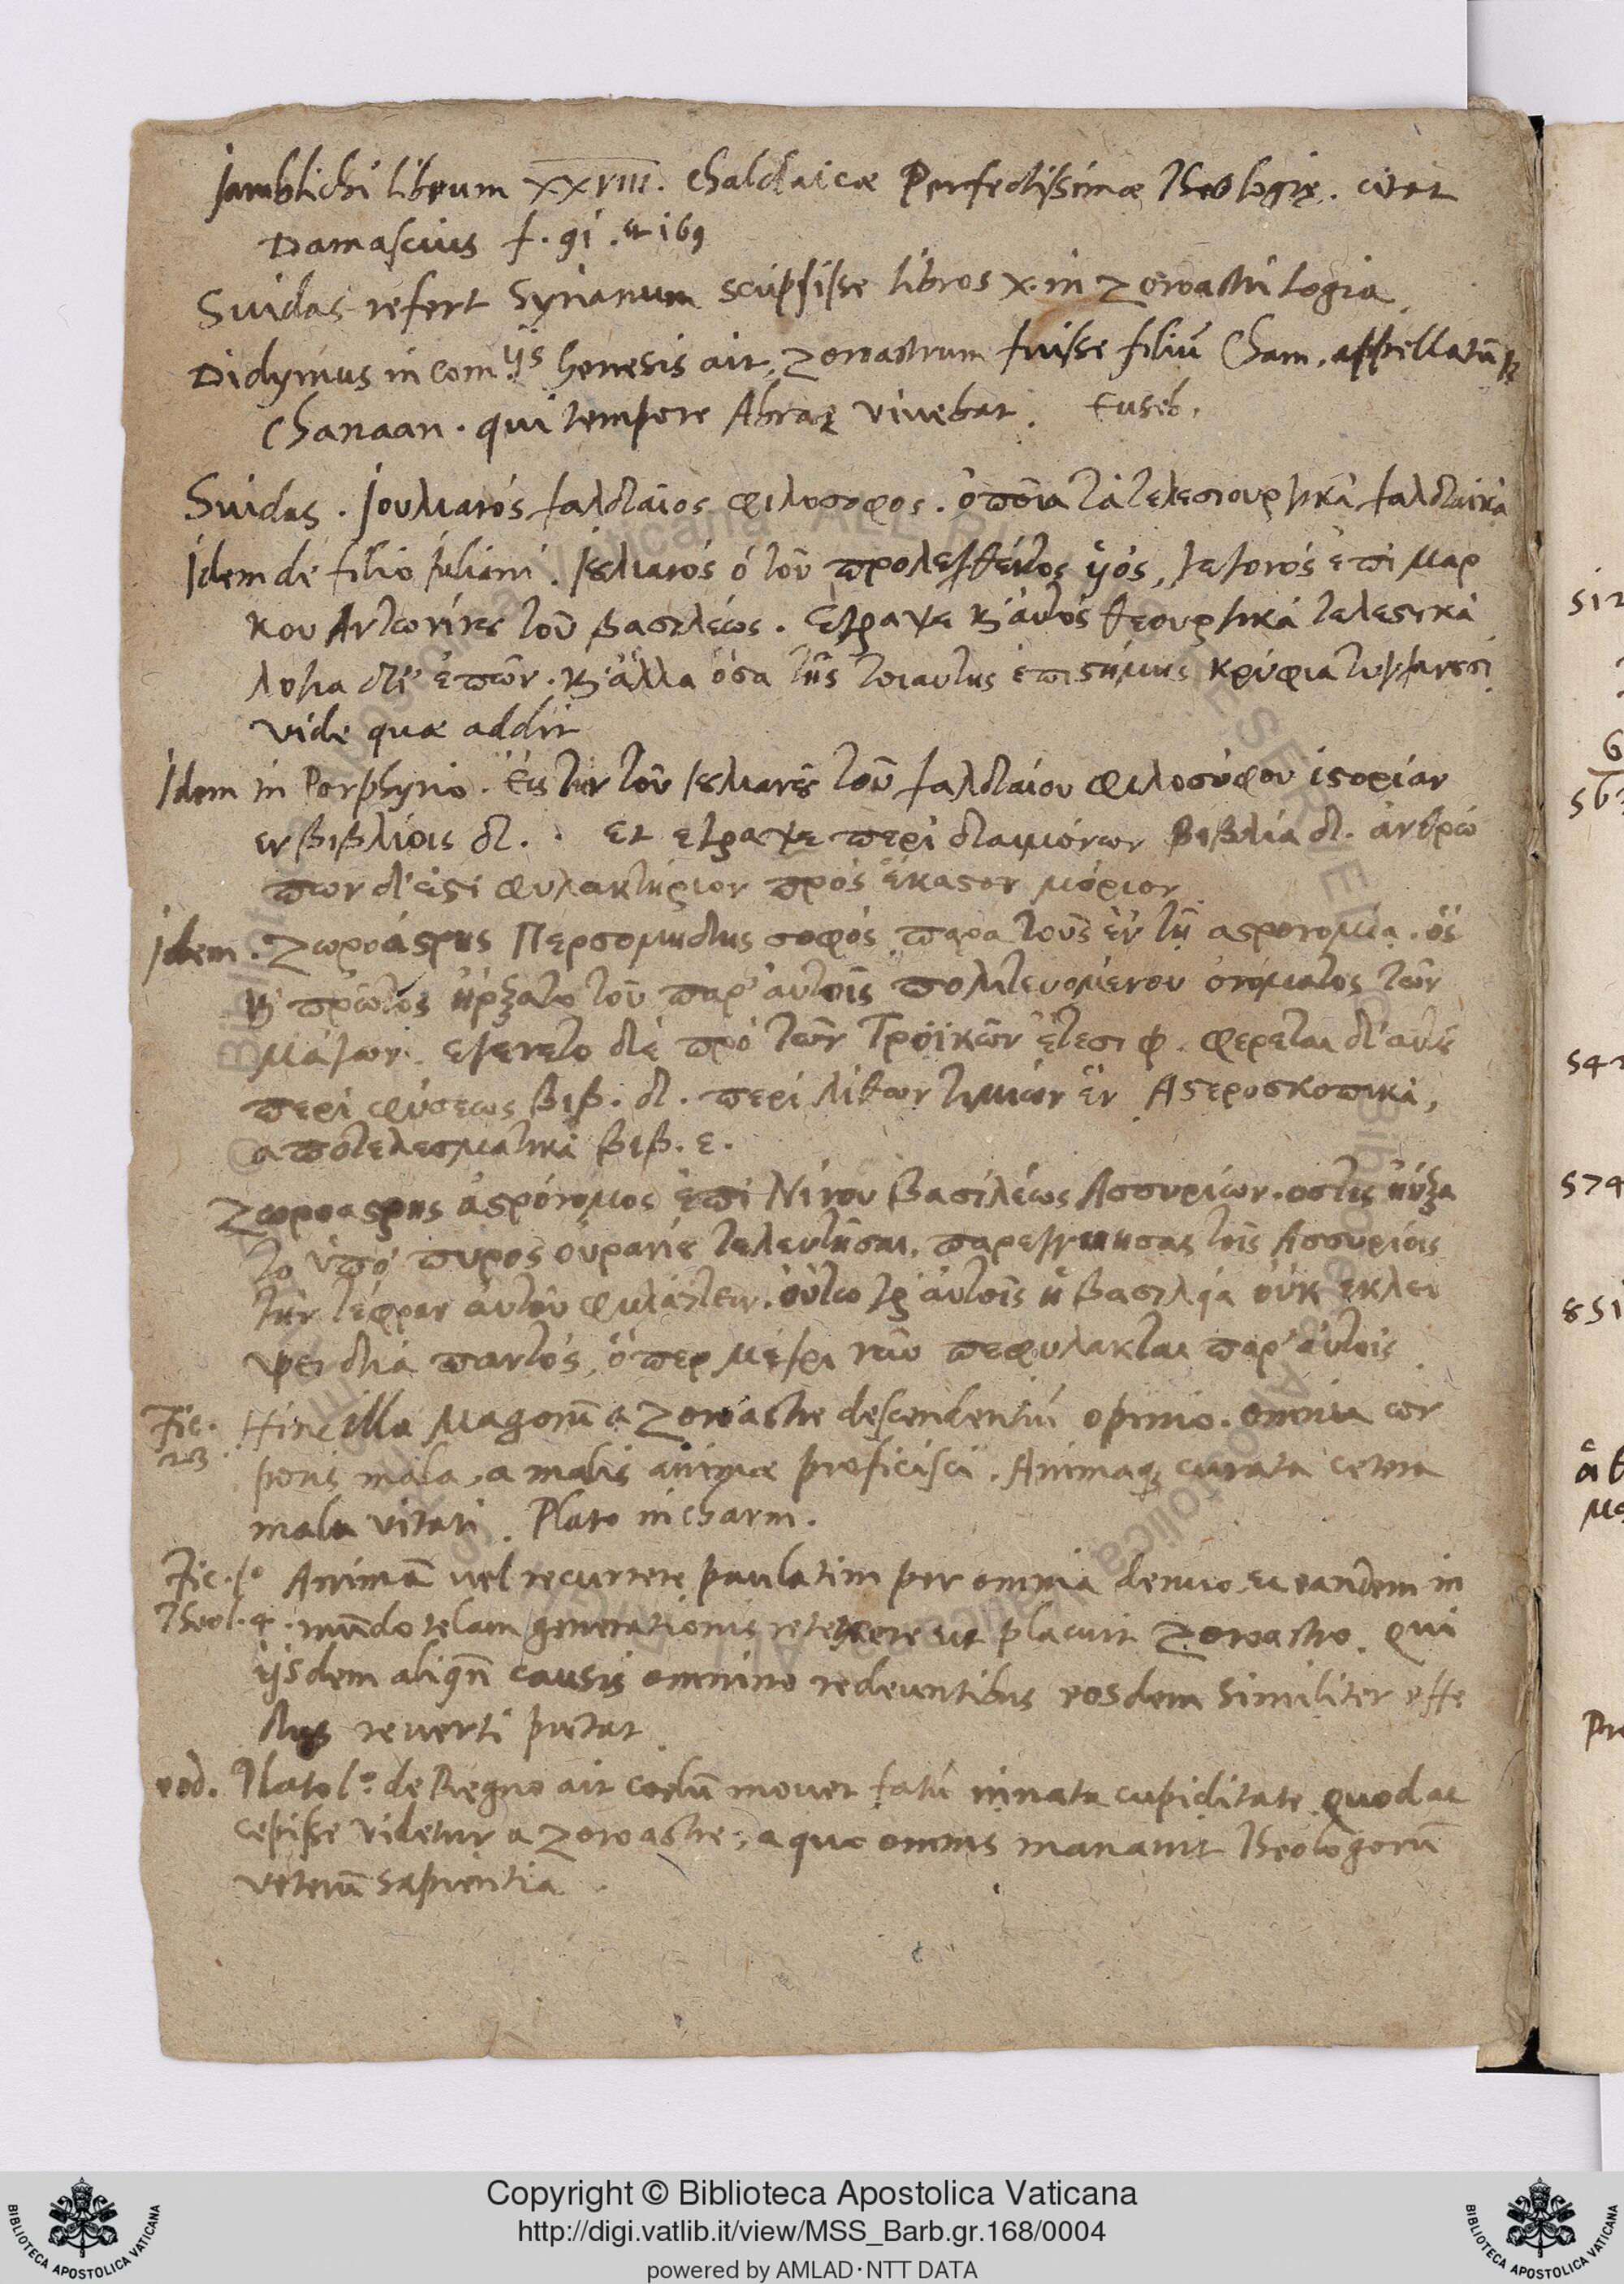 Jamblichi librum XXVIII. Chaldaicæ Perfectissimæ Theologię. citat
Damascius f. 91. et 169
Suidas refert Syrianum scripsisse libros X. in Zoroastri logia
Didymus in com.ijs Genesis ait, Zoroastrum fuisse filiũ Cham. appellatũq;
Chanaan. qui tempore Abraę vivebat. Euseb.
Suidas. Ιουλιανός χαλδαῖος φιλοσοφος. ὁ ποῖα τὰ τελεσιουργικά χαλδαικὰ
Idem de filio Juliani. Ιȣλιανός ὁ τοῦ προλεχθέντος ὑός, γεγονός ἐπὶ Μαρ
κου Αντωνίνȣ τοῦ βασιλέως. ἔγραψε ϗ αυτός θεουργικά τελεστικά
λογια δι' ἐπῶν. ϗ ἄλλα ὅσα τῆς τοιαυτης ἐπιστήμης κρύφια τυγχανεσι
vide quæ addit
Idem in Porphyrio. Εις την τοῦ Ιȣλιανȣ τοῦ χαλδαίου φιλοσόφου ἱστορίαν
εν βιβλίοις δ. . Et εγραψε περὶ δαιμόνων βιβλία δ. ἀνθρώ
πων δ' ἐστὶ φυλακτήριον πρὸς ἕκαστον μόριον
Idem. Ζωροάστρης Περσομήδης σοφός παρα τοῦς ἐν τῇ αστρονομία. ὅς
ϗ πρῶτος ἤρξατο τοῦ παρ' αυτοῖς πολιτευομενου ὀνόματος τῶν
μάγων. εγενετο δὲ πρό τῶν Τρωϊκῶν ἔτεσι φ. φερεται δ' αυτȣ
περὶ φύσεως βιβ. δ. περὶ λίθων τιμιών ἕν Αστεροσκοπικὰ,
αποτελεσματικὰ βιβ. ε.
Ζωροαστρης ἀστρόνομος ἐπὶ Νίνου βασιλέως Ασσυρίων. οστις ηὔξα
το ὑπό πυρος οὐρανίȣ τελευτῆσαι, παρεγγυησας τοῖς Ασσυρίοις
την τέφραν αὐτοῦ φυλάττειν. οὕτω γὰρ αὐτοῖς ἡ βασιλεία οὐκ εκλει
ψει διὰ παντός, ὅπερ μέχρι νῦν πεφυλακται παρ' αὐτοῖς
Fic. Hinc illa Magorũ a Zoroastre descendentiũ opinio. omnia cor
poris mala, a malis animæ proficisci. Animaq; curata cetera
mala vitari. Plato in charm.
Fic. lo Animã uel recurrere paulatim per omnia denuo, eandem in
Theol. 4. mũdo telam generationis retexere ut placuit Zoroastro. qui
ijsdem aliqñ causis omnino redeuntibus eosdem similiter effe
ctus reuerti putat
eod. Plato lo. de Regno ait coelũ mouet fatũ innata cupiditate quod ac
cepisse videtur a Zoroastre, a quo omnis manauit Theologorũ
veterũ sapientia
Copyright © Biblioteca Apostolica Vaticana
http://digi.vatlib.it/view/MSS_Barb.gr.168/0004
powered by AMLAD·NTT DATA